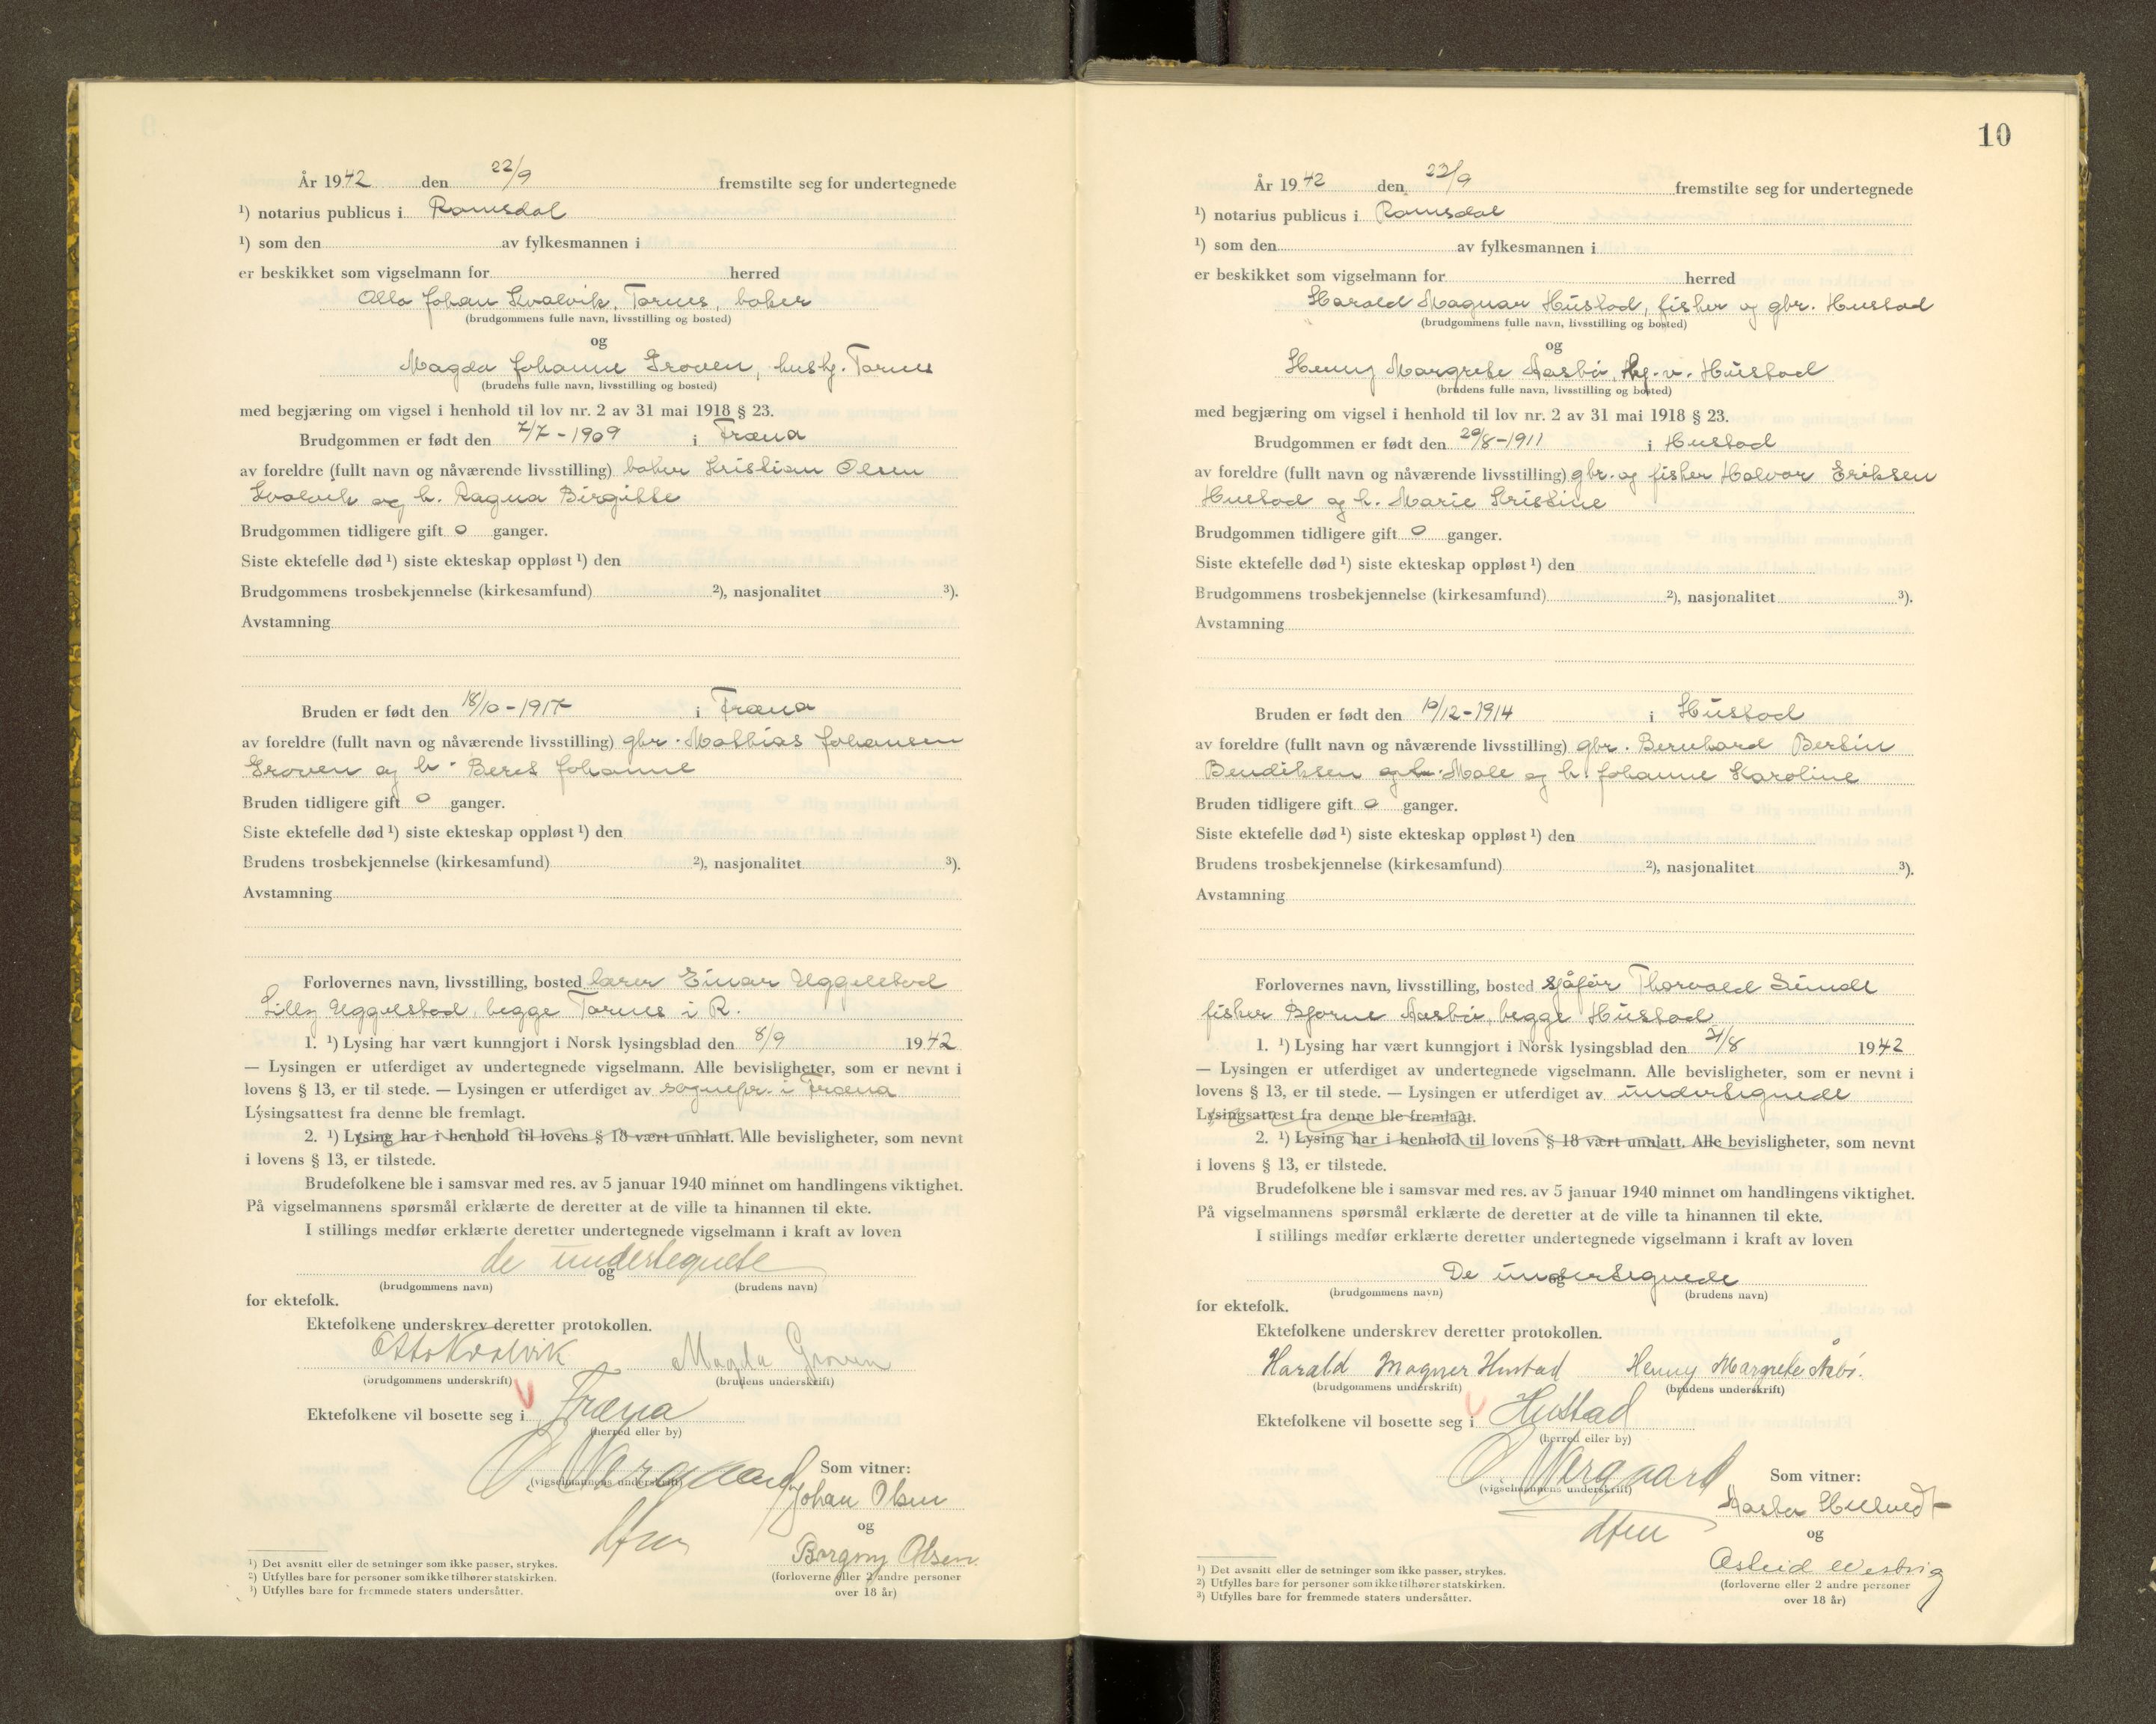 År 1942 den 22/9 fremstilte seg for undertegnede
¹) notarius publicus i Romsdal
¹) som den av fylkesmannen i
er beskikket som vigselmann for herred
Otto Johan Kvalvik, Tornes, baker
(brudgommens fulle navn, livsstilling og bosted)
og
Magda Johanne Groven, hushj. Tornes
(brudens fulle navn, livsstilling og bosted)
med begjæring om vigsel i henhold til lov nr. 2 av 31 mai 1918 § 23.
Brudgommen er født den 7/7-1909 i Fræna
av foreldre (fullt navn og nåværende livsstilling) baker Kristian Olsen
Kvalvik og h. Ragna Birgitte
Brudgommen tidligere gift 0 ganger.
Siste ektefelle død ¹) siste ekteskap oppløst ¹) den
Brudgommens trosbekjennelse (kirkesamfund) ²), nasjonalitet ³).
Avstamning
Bruden er født den 18/10-1917 i Fræna
av foreldre (fullt navn og nåværende livsstilling) gbr. Mathias Johansen
Groven og h. Beret Johanne
Bruden tidligere gift 0 ganger.
Siste ektefelle død ¹) siste ekteskap oppløst ¹) den
Brudens trosbekjennelse (kirkesamfund) ²), nasjonalitet ³).
Avstamning
Forlovernes navn, livsstilling, bosted lærer Einar Uggelstad
Lilly Uggelstad, begge Tornes i R.
1. ¹) Lysing har vært kunngjort i Norsk lysingsblad den 8/9 1942
— Lysingen er utferdiget av undertegnede vigselmann. Alle bevisligheter, som er nevnt i
lovens § 13, er til stede. — Lysingen er utferdiget av sognepr. i Fræna
Lysingsattest fra denne ble fremlagt.
2. ¹) Lysing har i henhold til lovens § 18 vært unnlatt. Alle bevisligheter, som nevnt
i lovens § 13, er tilstede.
Brudefolkene ble i samsvar med res. av 5 januar 1940 minnet om handlingens viktighet.
På vigselmannens spørsmål erklærte de deretter at de ville ta hinannen til ekte.
I stillings medfør erklærte deretter undertegnede vigselmann i kraft av loven
de undertegnete
og
(brudgommens navn) (brudens navn)
for ektefolk.
Ektefolkene underskrev deretter protokollen.
Otto Kvalvik Magda Groven
(brudgommens underskrift) (brudens underskrift)
Ektefolkene vil bosette seg i Fræna
(herred eller by)
O. Norgaard
(vigselmannens underskrift) Som vitner:
Johan Olsen
dfm
og
Borgny Olsen
(forloverne eller 2 andre personer
over 18 år)
¹) Det avsnitt eller de setninger som ikke passer, strykes.
²) Utfylles bare for personer som ikke tilhører statskirken.
³) Utfylles bare for fremmede staters undersåtter.
10
År 1942 den 23/9 fremstilte seg for undertegnede
¹) notarius publicus i Romsdal
¹) som den av fylkesmannen i
er beskikket som vigselmann for herred
Harald Magnar Hustad, fisker og gbr. Hustad
(brudgommens fulle navn, livsstilling og bosted)
og
Henny Margrete Aasbø, hj.v. Hustad
(brudens fulle navn, livsstilling og bosted)
med begjæring om vigsel i henhold til lov nr. 2 av 31 mai 1918 § 23.
Brudgommen er født den 20/8-1911 i Hustad
av foreldre (fullt navn og nåværende livsstilling) gbr. og fisker Halvor Eriksen
Hustad og h. Marie Kristine
Brudgommen tidligere gift 0 ganger.
Siste ektefelle død ¹) siste ekteskap oppløst ¹) den
Brudgommens trosbekjennelse (kirkesamfund) ²), nasjonalitet ³).
Avstamning
Bruden er født den 19/12-1914 i Hustad
av foreldre (fullt navn og nåværende livsstilling) gbr. Bernhard Bertin
Bendiksen og h. Male og h. Johanne Karoline
Bruden tidligere gift 0 ganger.
Siste ektefelle død ¹) siste ekteskap oppløst ¹) den
Brudens trosbekjennelse (kirkesamfund) ²), nasjonalitet ³).
Avstamning
Forlovernes navn, livsstilling, bosted sjåfør Thorvald Sundt
fisker Bjarne Aasbø, begge Hustad
1. ¹) Lysing har vært kunngjort i Norsk lysingsblad den 21/8 1942
— Lysingen er utferdiget av undertegnede vigselmann. Alle bevisligheter, som er nevnt i
lovens § 13, er til stede. — Lysingen er utferdiget av undertegnede
Lysingsattest fra denne ble fremlagt.
2. ¹) Lysing har i henhold til lovens § 18 vært unnlatt. Alle bevisligheter, som nevnt
i lovens § 13, er tilstede.
Brudefolkene ble i samsvar med res. av 5 januar 1940 minnet om handlingens viktighet.
På vigselmannens spørsmål erklærte de deretter at de ville ta hinannen til ekte.
I stillings medfør erklærte deretter undertegnede vigselmann i kraft av loven
De undertegnede
og
(brudgommens navn) (brudens navn)
for ektefolk.
Ektefolkene underskrev deretter protokollen.
Harald Magner Hustad Henny Margrete Åsbø.
(brudgommens underskrift) (brudens underskrift)
Ektefolkene vil bosette seg i Hustad
(herred eller by)
O. Norgaard
(vigselmannens underskrift) Som vitner:
dfm
og
(forloverne eller 2 andre personer
over 18 år)
¹) Det avsnitt eller de setninger som ikke passer, strykes.
²) Utfylles bare for personer som ikke tilhører statskirken.
³) Utfylles bare for fremmede staters undersåtter.